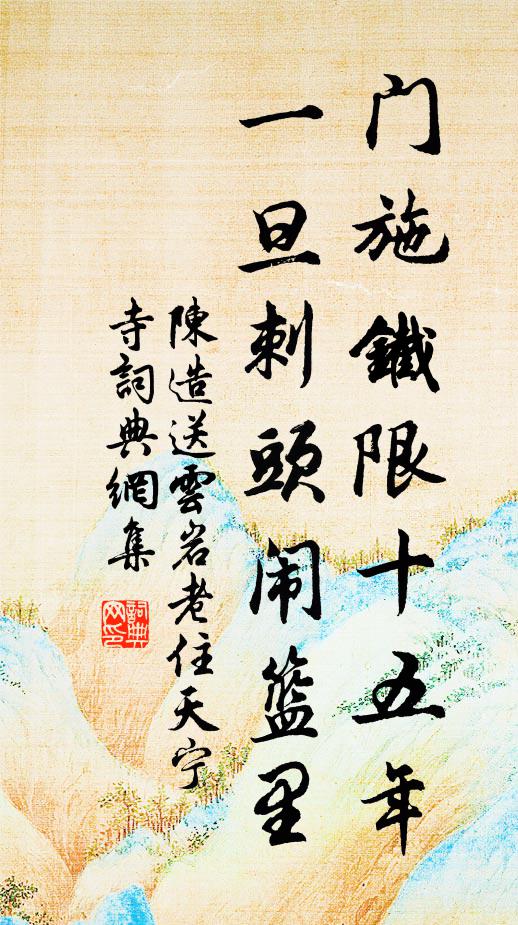 门施鐵限十五年
一旦刺頭闹籃里
陳造送雲岩老住天宁
寺詞典網集
詞典
网印